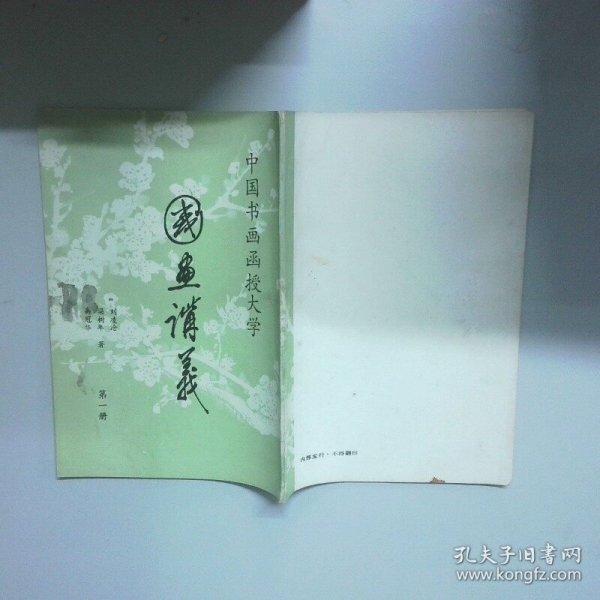 中国书画函授大学
國畫講義
刘凌沧
梁树年 著
俞冠华
第一册
内部发行·不得翻印
孔夫子旧书网
www.kongfz.com